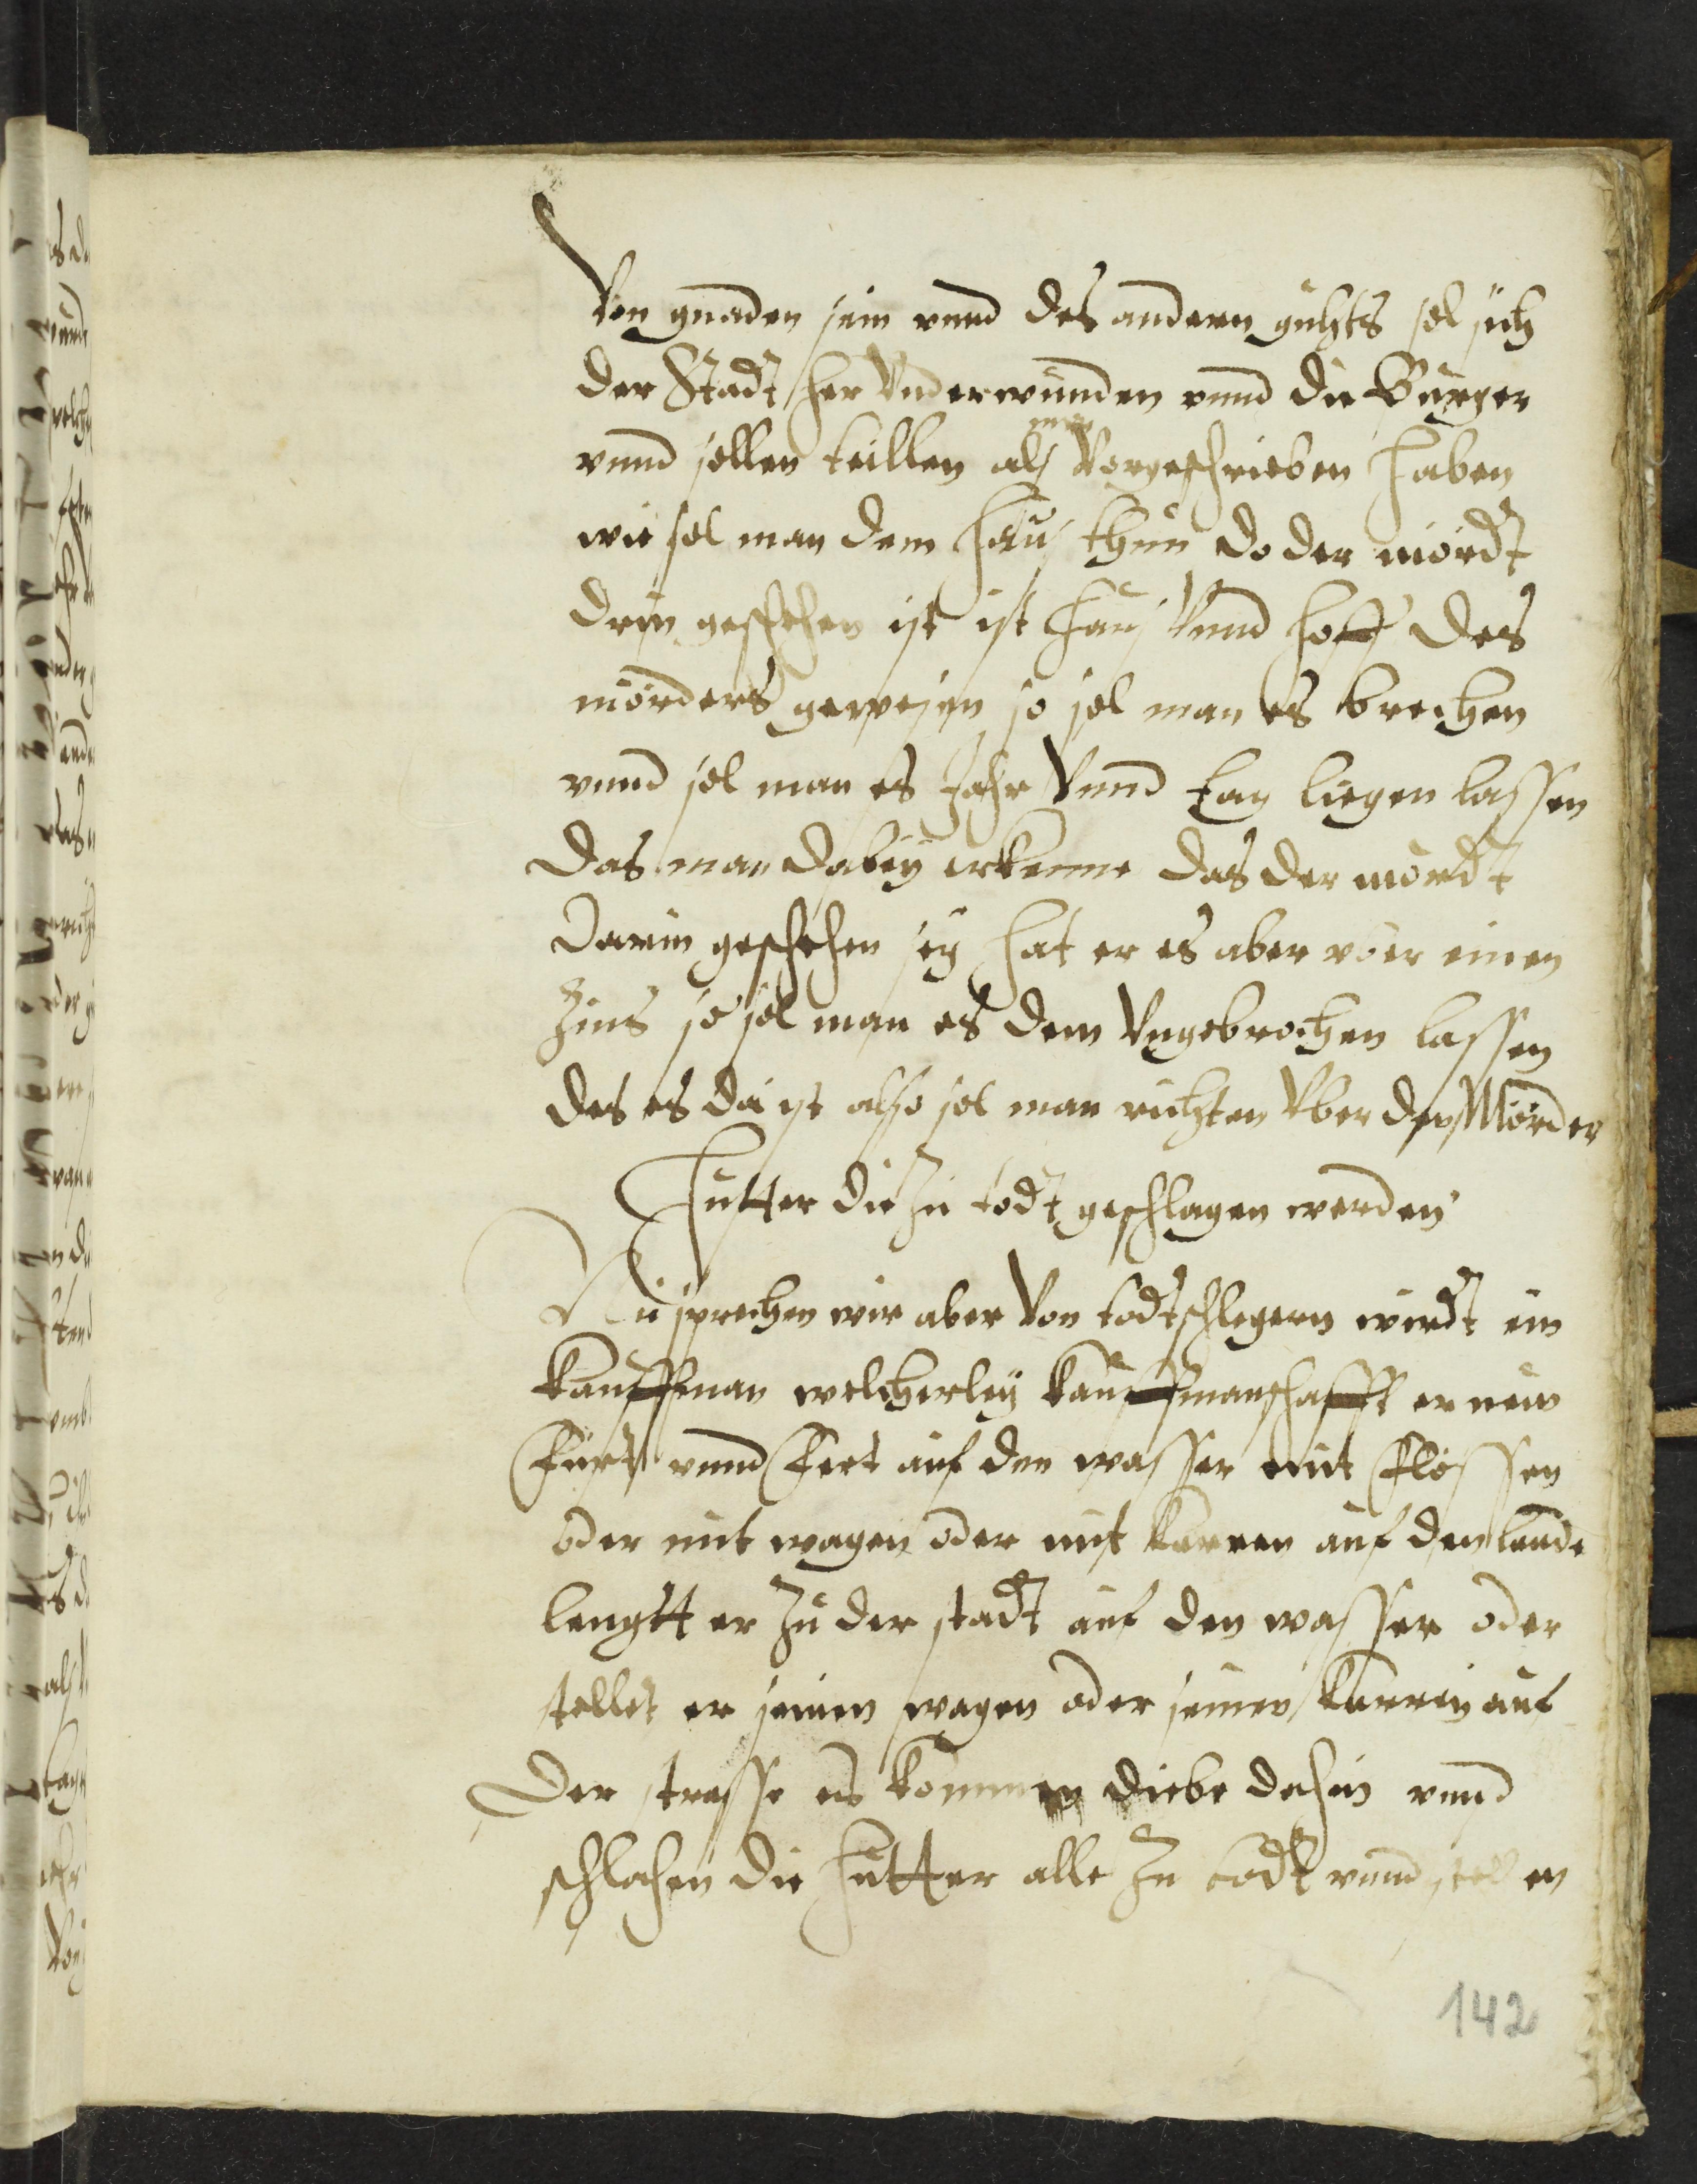 Von gnaden sein vnnd des andern guhts sol sich
der Stadt her Vnderwunden vnnd die Burger
vnnd sollen teillen als wir Vorgeschrieben haben
wie sol man dem hauß thun do der mordt
drin geschehen ist ist hauß Vnnd hoff des
mörders gewesen so sol man es brechen
vnnd sol man es Jahr Vnnd tag liegen lassen
das man dabey erkenne das der mordt
darin geschehen sey hat er es aber vber einen
Zins so sol man es dem Vngebrochen lassen
des es da ist also sol man richten Vber den Mörder
Hutter die zu todt geschlagen werden
Nu sprechen wir aber Von todtschlegern wirdt ein
kauffman welcherley kauffmanschafft er nun
fürt vnnd fert auf den wasser mit flössen
oder mit wagen oder mit karren auf den lande
lengtt er zu der stadt auf den wasser oder
stellet er seinen wagen oder seinen karren auf
der strasse es kommen diebe dahin vnnd
schlahen die hutter alle zu todt vnnd stellen
142